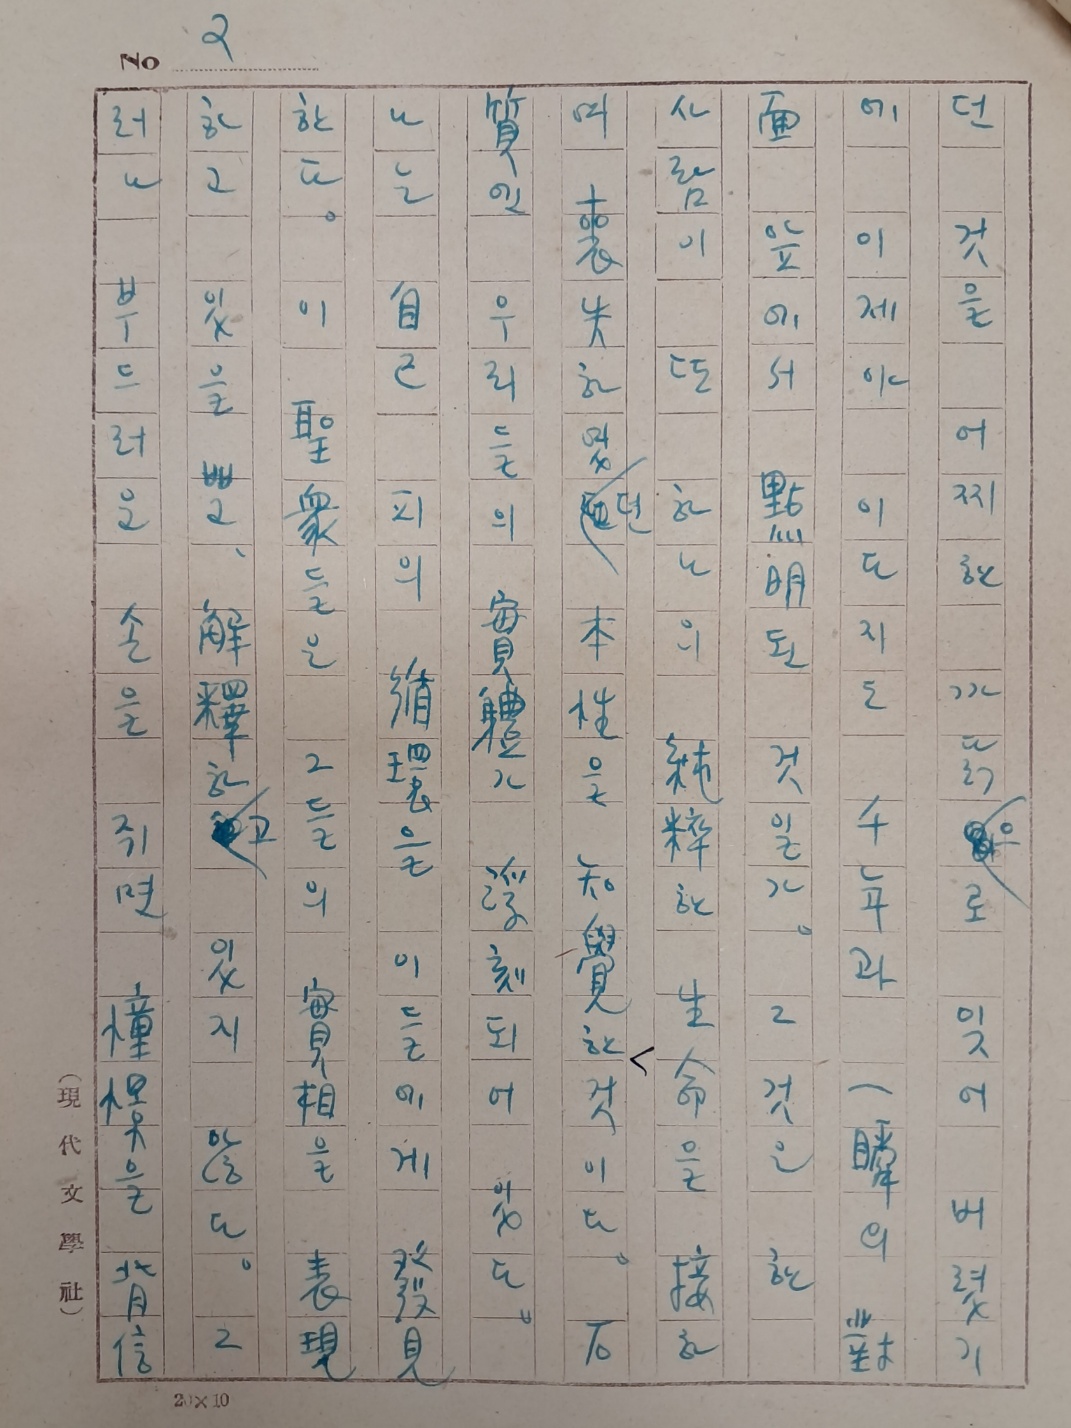 No 2
던 것을 어찌한 까닭으로 잊어 버렸기
에 이제야 이다지도 수年과 一瞬의 對
面 앞에서 點明된 것일가。 그것은 한
사람이 또 하나의 純粹한 生命을 接하
며 喪失하였던 本性을 知覺한 것이다。 石
質인 우리들의 實體가 浮刻되어 있다。
나는 自己 피의 循環을 이들에게 發見
한다。 이 聖衆들은 그들의 實相을 表現
하고 있을뿐、 解釋하고 있지 않다。 그
러나 부드러운 손을 쥐면 憧憬을 背信
(現代文學社)
20×10